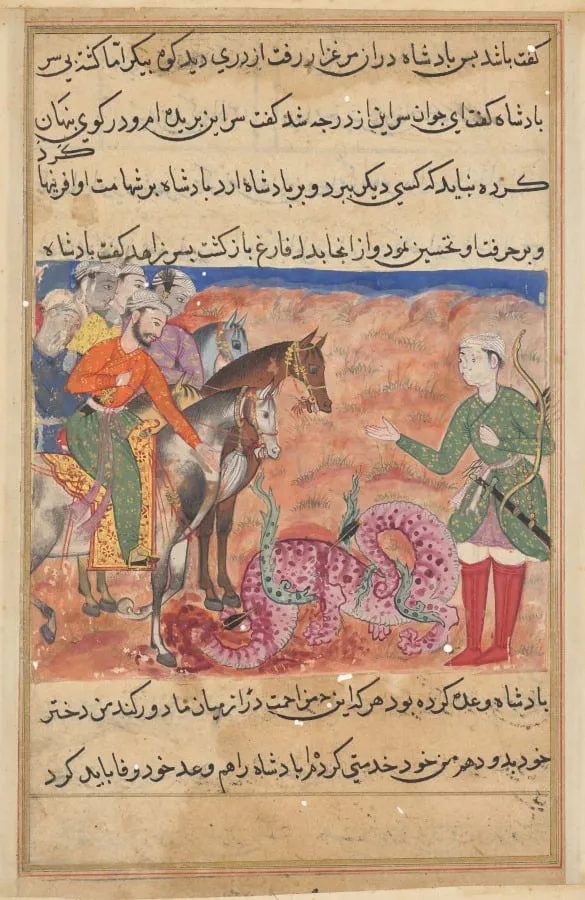 کفت باشد بس بادشاه در از مرغزار رفت ازدری دید کوه بیکر اما کشته بی سر
بادشاه کفت ای جوان سر این ازدر جه شد کفت سر این بریده ام و در کوی بنهان
کرد
کرده نباید که کسی دیکر ببرد و بر بادشاه ارد بادشاه بر شهامت او افرینها
و بر حرفت او تحسین نمود و از انجا بدل فارغ باز کشت بسر زاهد کفت بادشاه
بادشاه وعده کرده بود هر که این جنین زحمت را از میان ما دور کند من دختر
خود بدو دهم من خود خدمتی کردم بادشاه را هم وعده خود وفا باید کرد